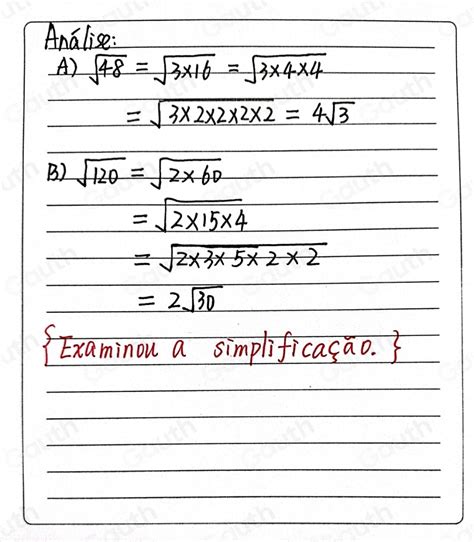 Análise:
A) √48 = √3×16 = √3×4×4
= √3×2×2×2×2 = 4√3
B) √120 = √2×60
= √2×15×4
= √2×3×5×2×2
= 2√30
{Examinou a simplificação.}
Gauth